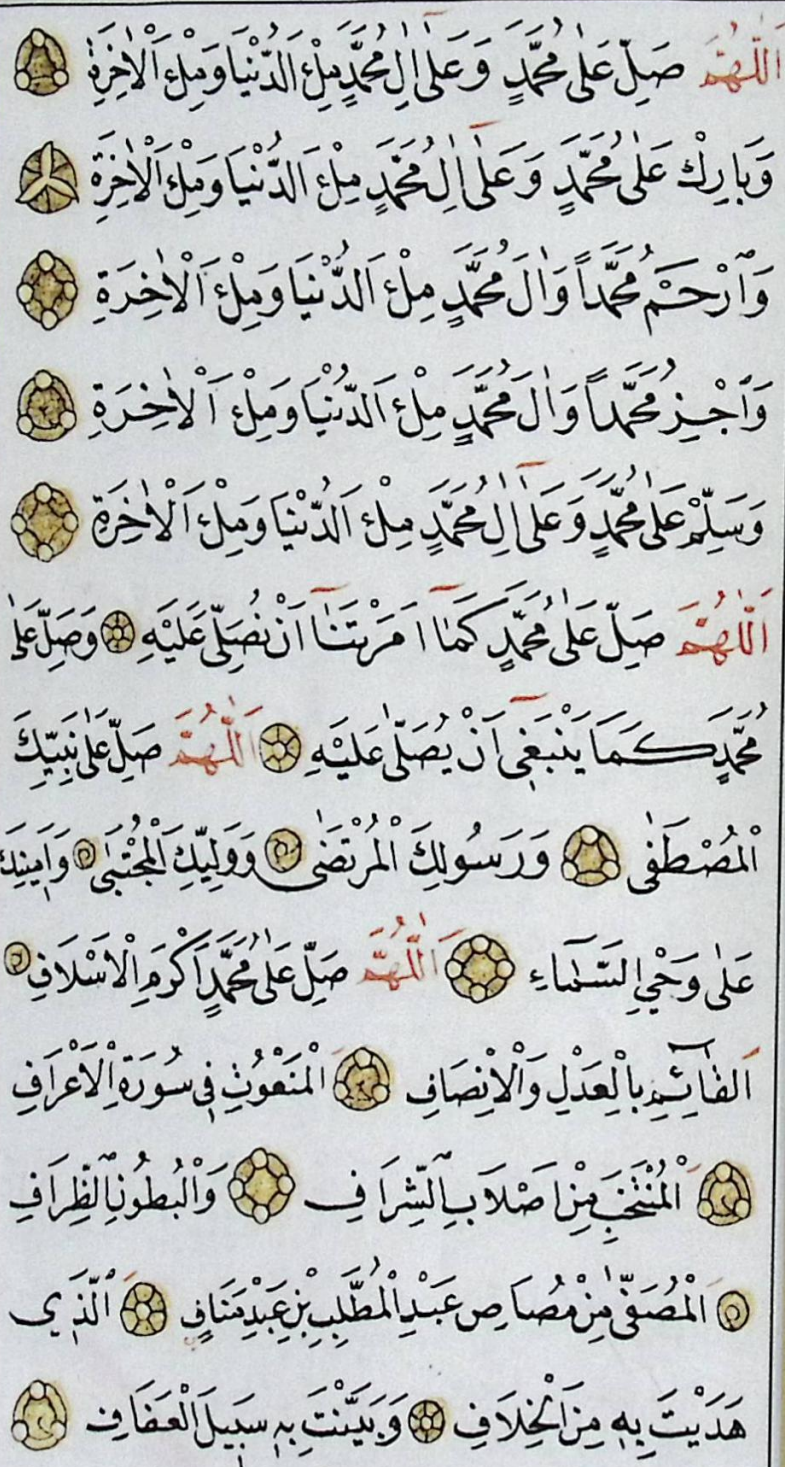 اَللّٰهُمَّ صَلِّ عَلٰى مُحَمَّدٍ وَعَلٰٓى اٰلِ مُحَمَّدٍ مِلْءَ الدُّنْيَا وَمِلْءَ الْاٰخِرَةِ
وَبَارِكْ عَلٰى مُحَمَّدٍ وَعَلٰٓى اٰلِ مُحَمَّدٍ مِلْءَ الدُّنْيَا وَمِلْءَ الْاٰخِرَةِ
وَارْحَمْ مُحَمَّداً وَاٰلَ مُحَمَّدٍ مِلْءَ الدُّنْيَا وَمِلْءَ الْاٰخِرَةِ
وَاجْزِ مُحَمَّداً وَاٰلَ مُحَمَّدٍ مِلْءَ الدُّنْيَا وَمِلْءَ الْاٰخِرَةِ
وَسَلِّمْ عَلٰى مُحَمَّدٍ وَعَلٰٓى اٰلِ مُحَمَّدٍ مِلْءَ الدُّنْيَا وَمِلْءَ الْاٰخِرَةِ
اَللّٰهُمَّ صَلِّ عَلٰى مُحَمَّدٍ كَمَٓا اَمَرْتَنَٓا اَنْ نُصَلِّىَ عَلَيْهِ وَصَلِّ عَلٰى
مُحَمَّدٍ كَمَا يَنْبَغ۪ٓى اَنْ يُصَلّٰى عَلَيْهِ اَللّٰهُمَّ صَلِّ عَلٰى نَبِيِّكَ
الْمُصْطَفٰى وَرَسُولِكَ الْمُرْتَضٰى وَوَلِيِّكَ الْمُجْتَبٰى وَاَم۪ينِكَ
عَلٰى وَحْيِ السَّمَٓاءِ اَللّٰهُمَّ صَلِّ عَلٰى مُحَمَّدٍ اَكْرَمِ الْاَسْلَافِ
اَلْقَٓائِمِ بِالْعَدْلِ وَالْاِنْصَافِ الْمَنْعُوتِ ف۪ى سُورَةِ الْاَعْرَافِ
الْمُنْتَخَبِ مِنْ اَصْلَابِ الشِّرَافِ وَالْبُطُونِ الظِّرَافِ
الْمُصَفّٰى مِنْ مُصَاصِ عَبْدِ الْمُطَّلِبِ بْنِ عَبْدِ مَنَافٍ الَّذ۪ى
هَدَيْتَ بِه۪ مِنَ الْخِلَافِ وَبَيَّنْتَ بِه۪ سَب۪يلَ الْعَفَافِ